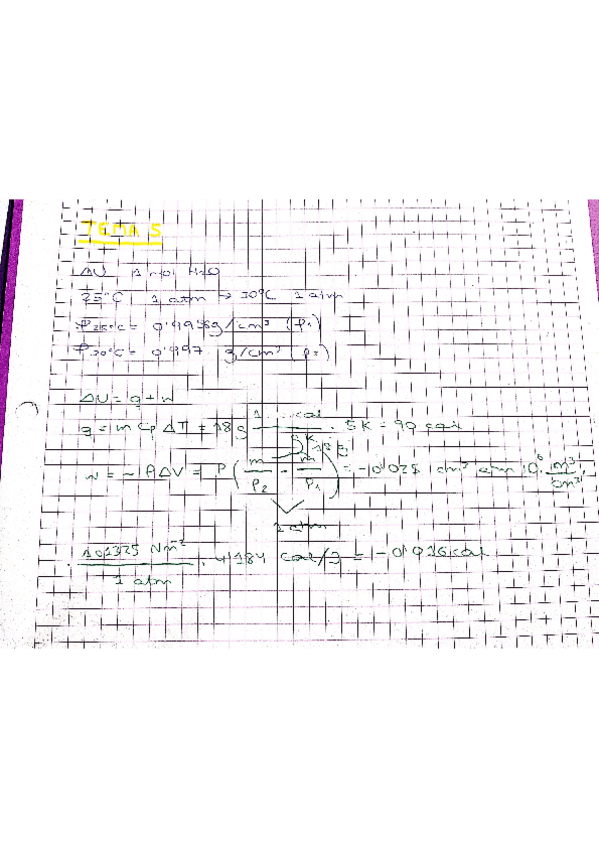 TEMA 5
ΔU 1 mol H2O
25°C 1 atm → 30°C 1 atm
ρ25°C = 0'998 g/cm³ (ρ1)
ρ30°C = 0'997 g/cm³ (ρ2)
ΔU = q + w
q = m Cp ΔT = 18 g · 1 cal / g K · 5 K = 90 cal
w = - P ΔV = P ( m/ρ2 - m/ρ1 ) = -10'025 cm³ atm 10^6 · m³/cm³ ·
1 atm
· 101325 Nm^-2 / 1 atm · 4'184 cal/J = -0'916 cal